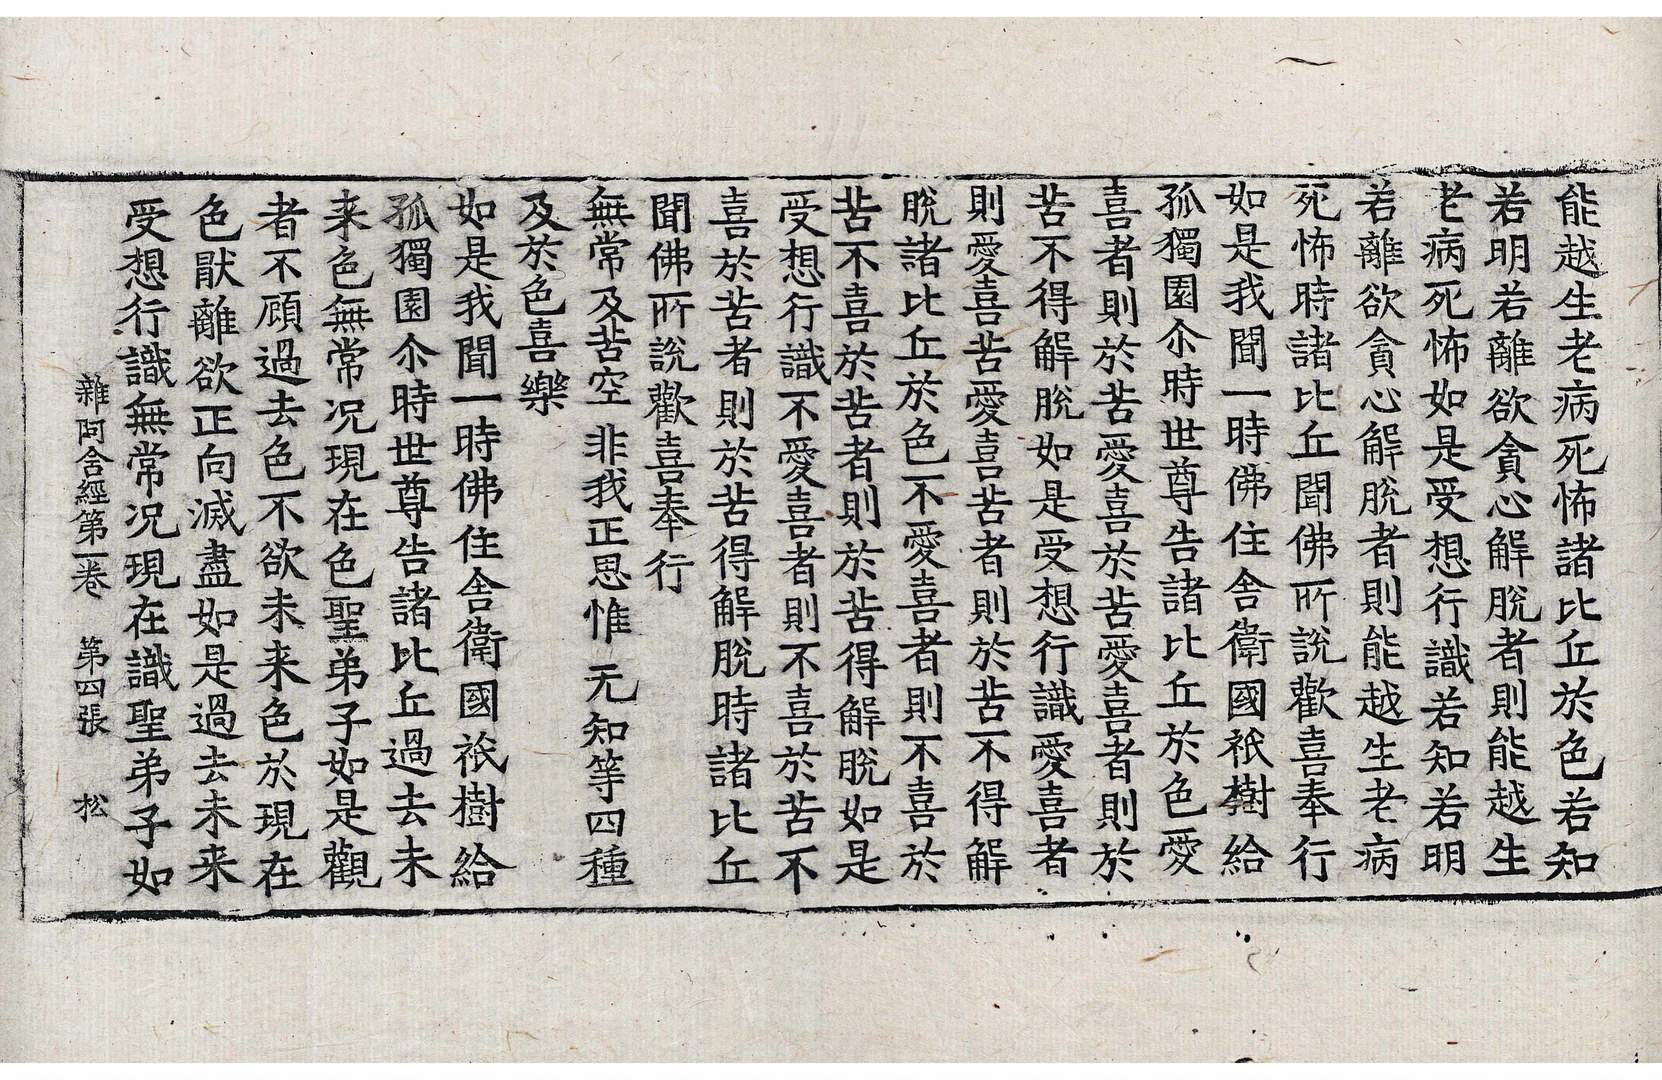 能越生老病死怖諸比丘於色若知
若明若離欲貪心解脫者則能越生
老病死怖如是受想行識若知若明
若離欲貪心解脫者則能越生老病
死怖時諸比丘聞佛所說歡喜奉行
如是我聞一時佛住舍衛國祇樹給
孤獨園尒時世尊告諸比丘於色愛
喜者則於苦愛喜於苦愛喜者則於
苦不得解脫如是受想行識愛喜者
則愛喜苦愛喜苦者則於苦不得解
脫諸比丘於色不愛喜者則不喜於
苦不喜於苦者則於苦得解脫如是
受想行識不愛喜者則不喜於苦不
喜於苦者則於苦得解脫時諸比丘
聞佛所說歡喜奉行
無常及苦空 非我正思惟 无知等四種
及於色喜樂
如是我聞一時佛住舍衛國祇樹給
孤獨園尒時世尊告諸比丘過去未
来色無常况現在色聖弟子如是觀
者不顧過去色不欲未来色於現在
色猒離欲正向滅盡如是過去未来
受想行識無常况現在識聖弟子如
雜阿含經第一卷 第四張 松